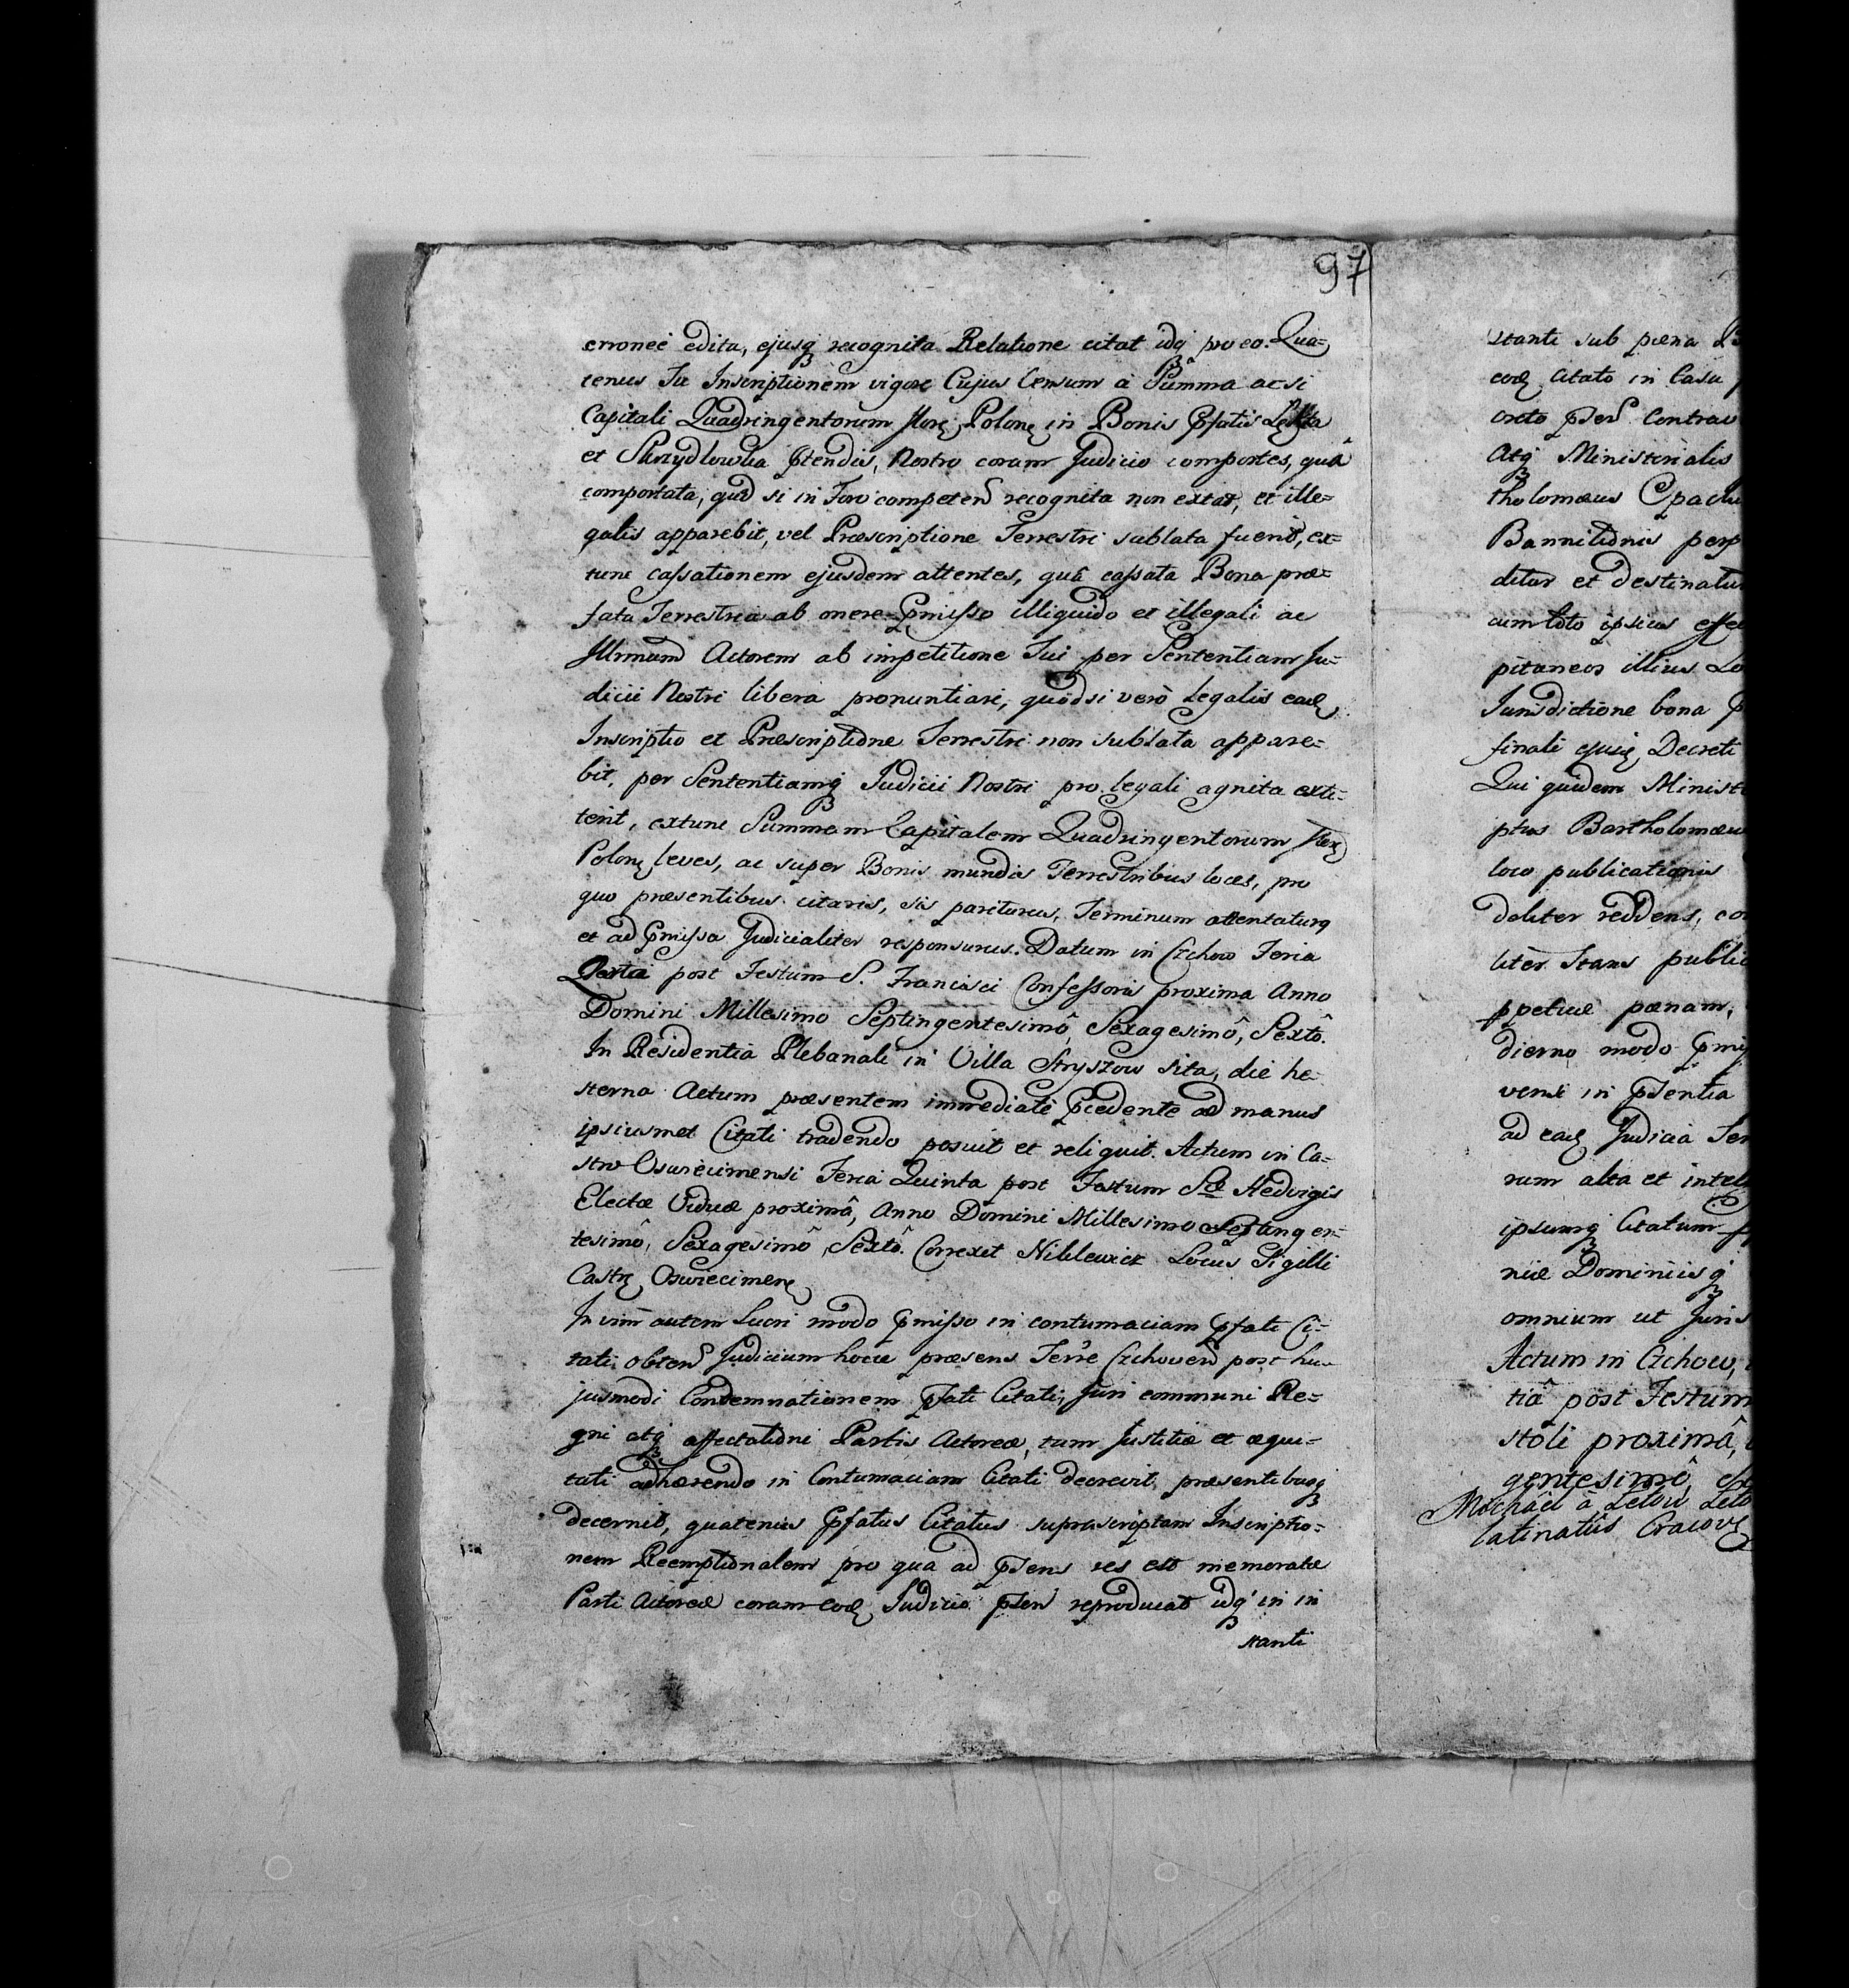 97
erroneè edita, ejusq recognita Relatione citat idq pro eo. Qua=
tenus Tu Inscriptionem vigore Cujus Censum a Summa ac si
Capitali Quadringentorum flor. Polon. in Bonis Pfatis
et Skrzydlowka Ptendis, Nostro coram Judicio comportes, quâ
comportata, quod si in Foro competen recognita non extat, et ille=
galis apparebit, vel Præscriptione Terrestri sublata fuerit, ex=
tunc cassationem ejusdem attentes, quâ cassata Bona præ=
fata Terrestria ab onere Pmisso illiquido et illegali ac
Illrmum Actorem ab impetitione Tui per Sententiam Ju=
dicii Nostri libera pronuntiari, quod si verò legalis ead
Inscriptio et Præscriptione Terrestri non sublata appare=
bit, per Sententiamq Judicii Nostri pro legali agnita exti=
terit, extunc Summam Capitalem Quadringentorum flor
Polon leves, ac super Bonis mundis Terrestribus loces, pro
quo præsentibus citaris, sis pariturus, Terminum attentaturq
et ad Pmissa Judicialiter responsurus. Datum in Czchow Feria
post Festum S. Francisci Confessoris proxima Anno
Domini Millesimo Septingentesimô, Sexagesimô, Sextô.
In Residentia Plebanali in Villa Stryszow sita, die he=
sterna Actum præsentem immediatè Pcedente ad manus
ipsiusmet Citati tradendo posuit et reliquit. Actum in Ca=
stro Oswiecimensi Feria Quinta post Festum Stæ Hedvigis
Electæ Viduæ proximâ, Anno Domini Millesimo Septingen=
tesimô, Sexagesimô, Sextô. Correxit Niblewicz Locus Sigilli
Castr Oswiecimen
In vim autem Lucri modo Pmisso in contumaciam Pfati Ci=
tati obten Judicium hocce præsens Terre Czchovien post hu=
jusmodi Condemnationem Pfati Citati, Juri communi Re=
gni atq affectationi Partis Actoreæ, tum Justitiæ et æqui=
tati adhærendo in Contumaciam Citati decrevit, præsentibusq
decernit, quatenus Pfatus Citatus suprascriptam Inscriptio=
nem Reemptionalem pro qua ad Psens res est memoratæ
Parti Actoreæ coram eod Judicio Psen reproducat idq in in
stanti
stanti sub pœna
eod Citato in Casu
creto Psen Contrav
Atq Ministerialis
tholomæus Opach
Bannitionis perp
ditur et destinatur
cum toto ipsius effe
pitaneos illius Lo
Jurisdictione bona P
finali ejusd Decreti
Qui quidem Ministe
ptus Bartholomæu
loco publicationis
deliter reddens, co
liter stans public
ppetuæ pœnam,
dierno modo Pmis
vensi in Psentia
ad ead Judicia Ter
rum alta et intel
ipsumq Citatum
niæ Dominiisq
omnium ut Juris
Actum in Czchow,
tiâ post Festum
stoli proximâ,
gentesimô,
Michael à Letow Leto
latinatûs Cracov